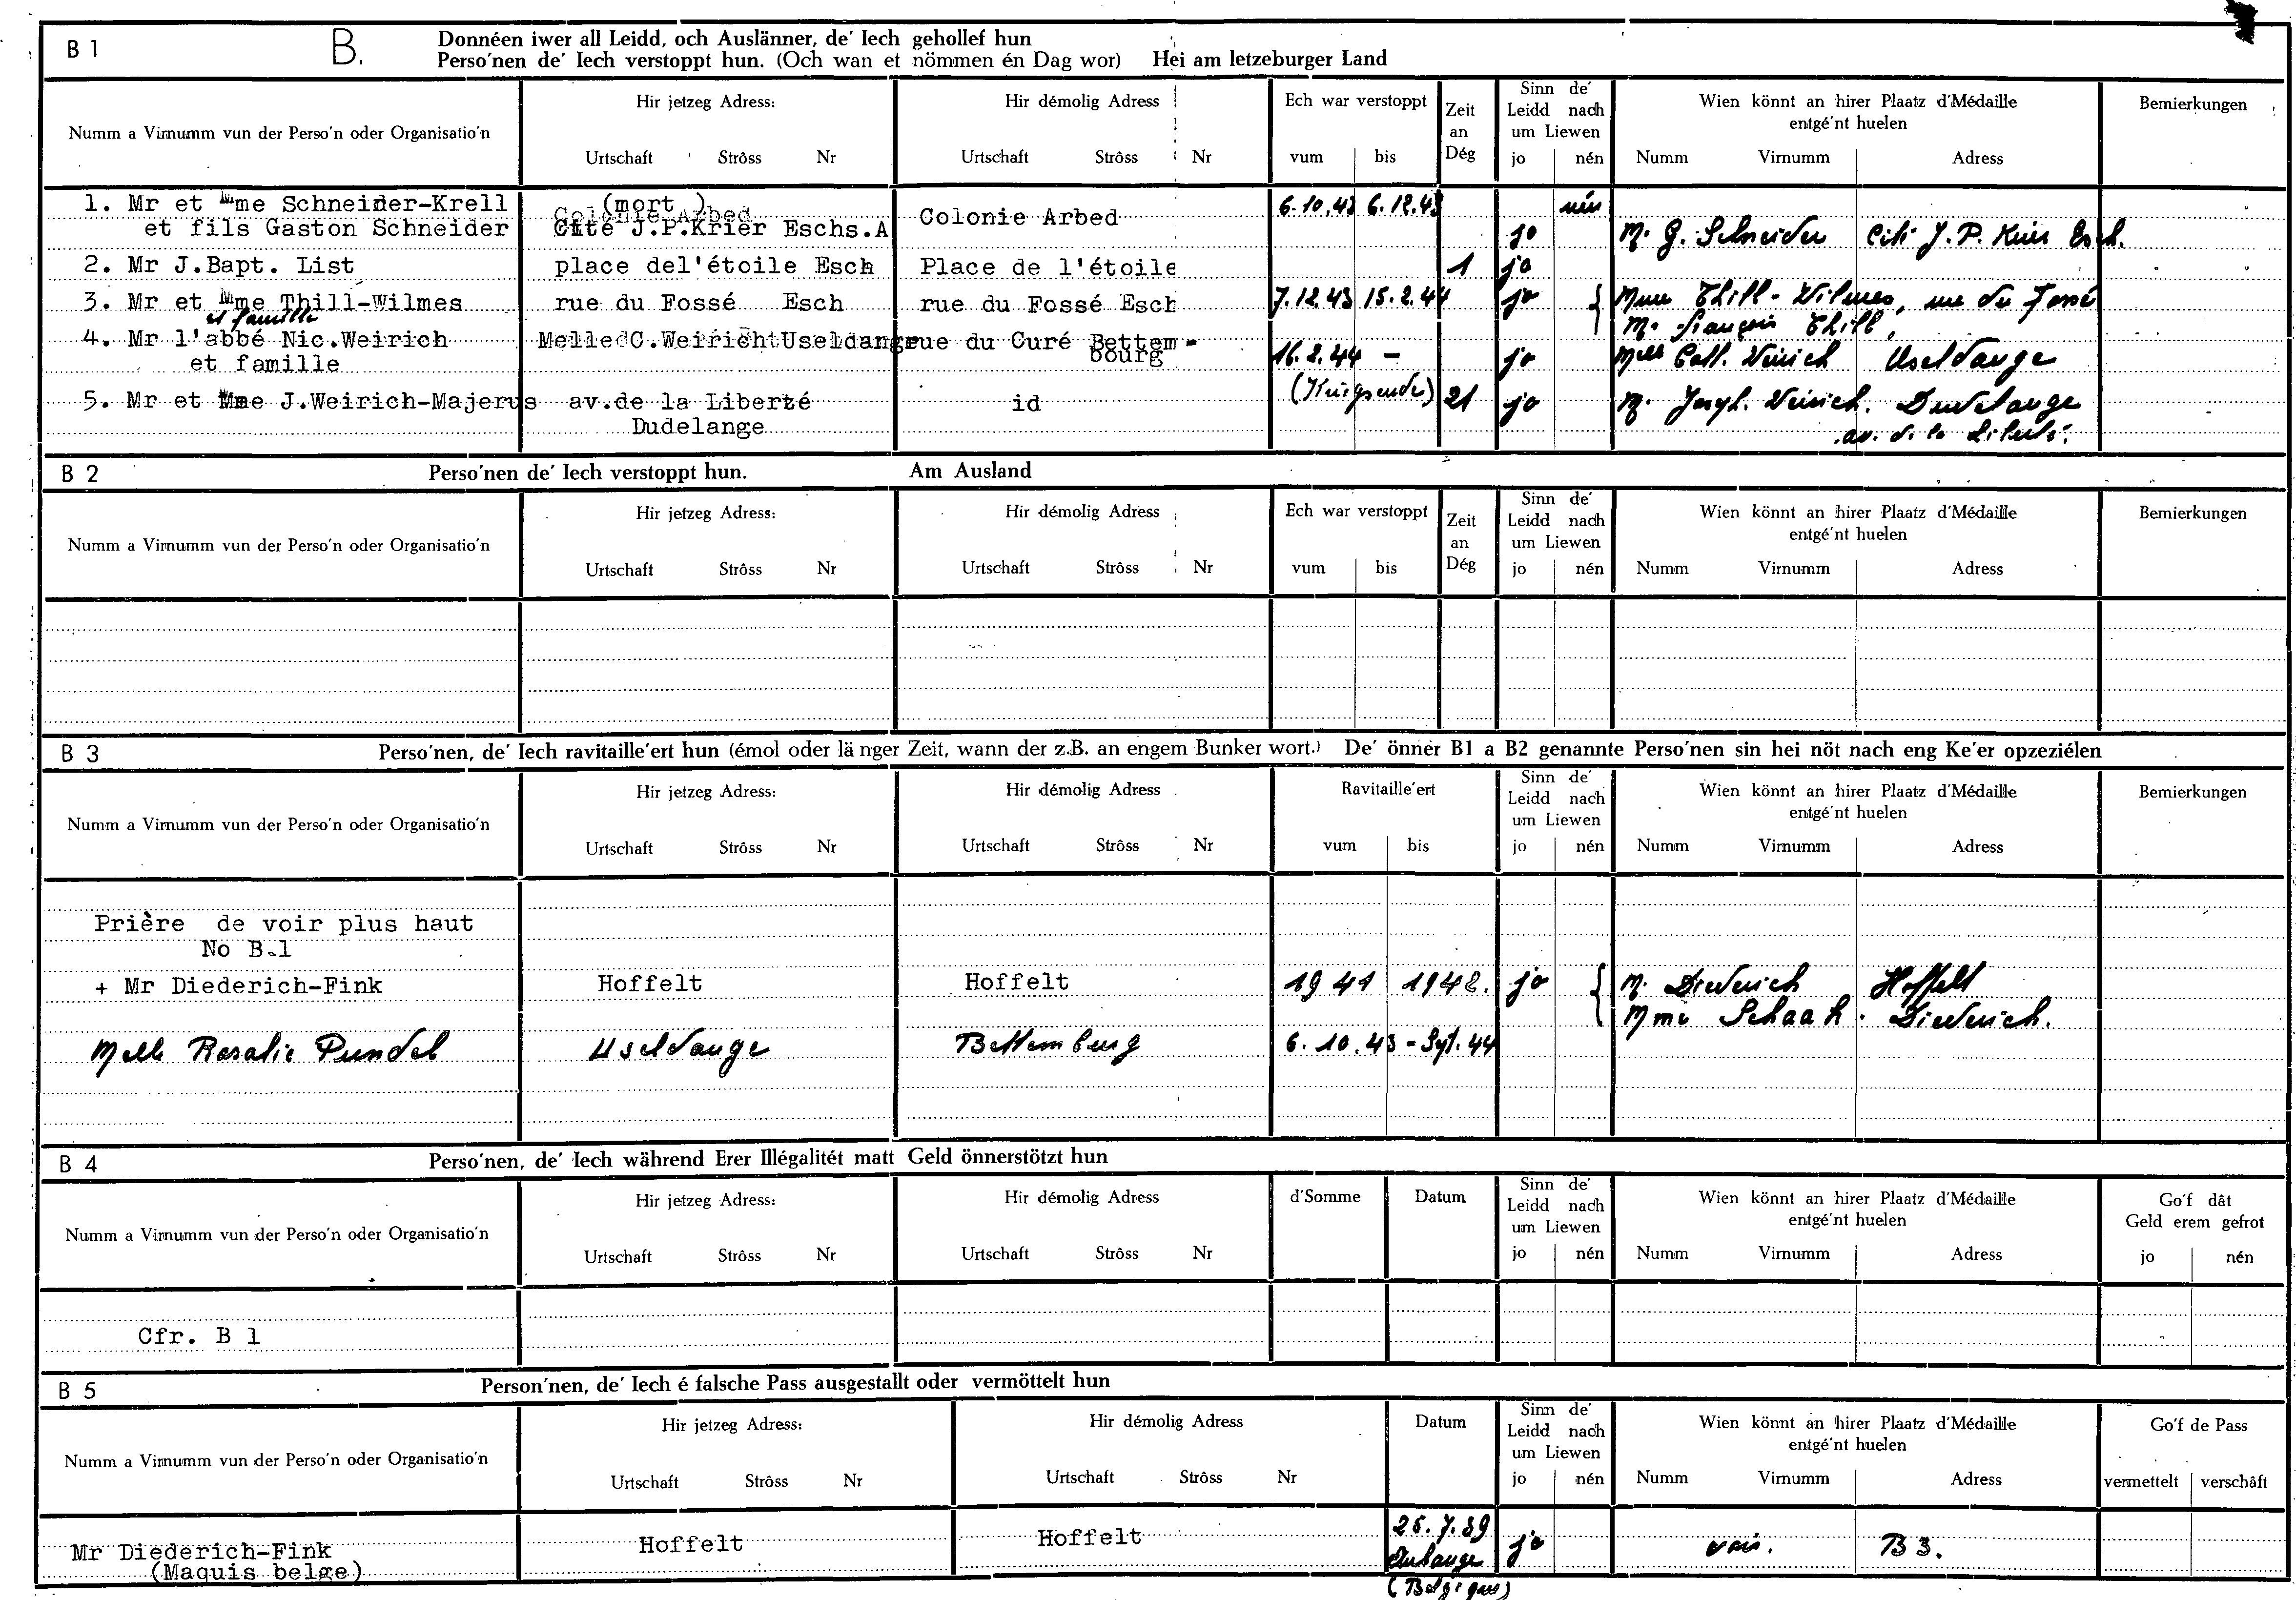 B 1 B. Donnéen iwer all Leidd, och Auslänner, de' Iech gehollef hun
Perso'nen de' Iech verstoppt hun. (Och wan et nömmen én Dag wor) Hei am letzeburger Land
Numm a Virnumm vun der Perso'n oder Organisatio'n Hir jetzeg Adress: Hir démolig Adress Ech war verstoppt Zeit an Dég Sinn de' Leidd nach um Liewen Wien könnt an hirer Plaatz d'Médaille entgé'nt huelen Bemierkungen
Urtschaft Strôss Nr Urtschaft Strôss Nr vum bis jo nén Numm Virnumm Adress
1. Mr et Mme Schneider-Krell (mort ) 6.10.43 6.12.43 nén
et fils Gaston Schneider Cité J.P.Krier Eschs.A Colonie Arbed jo M. G. Schneider Cité J. P. Krier Esch.
2. Mr J.Bapt. List place del'étoile Esch Place de l'étoile 1 jo
3. Mr et Mme Thill-Wilmes rue du Fossé Esch rue du Fossé Esch 7.12.43 15.2.44 jo Mme Thill-Wilmes, rue du Fossé
et famille M. François Thill,
4. Mr l'abbé Nic.Weirich Melle C.Weirich Useldange rue du Curé Bettem-
et famille bourg 16.2.44 - jo Melle Cath. Weirich Useldange
(Kriegsende)
5. Mr et Mme J.Weirich-Majerus av.de la Liberté id 21 jo M. Joseph. Weirich. Dudelange
Dudelange av. de la Liberté.
B 2 Perso'nen de' Iech verstoppt hun. Am Ausland
Numm a Virnumm vun der Perso'n oder Organisatio'n Hir jetzeg Adress: Hir démolig Adress Ech war verstoppt Zeit an Dég Sinn de' Leidd nach um Liewen Wien könnt an hirer Plaatz d'Médaille entgé'nt huelen Bemierkungen
Urtschaft Strôss Nr Urtschaft Strôss Nr vum bis jo nén Numm Virnumm Adress
B 3 Perso'nen, de' Iech ravitaille'ert hun (émol oder länger Zeit, wann der z.B. an engem Bunker wort.) De' önner B1 a B2 genannte Perso'nen sin hei nöt nach eng Ke'er opzeziélen
Numm a Virnumm vun der Perso'n oder Organisatio'n Hir jetzeg Adress: Hir démolig Adress Ravitaille'ert Sinn de' Leidd nach um Liewen Wien könnt an hirer Plaatz d'Médaille entgé'nt huelen Bemierkungen
Urtschaft Strôss Nr Urtschaft Strôss Nr vum bis jo nén Numm Virnumm Adress
Prière de voir plus haut
No B.1
+ Mr Diederich-Fink Hoffelt Hoffelt 1941 1942. jo M. Diederich Hoffelt
Mme Schaack-Diederich.
Melle Rosalie Pundel Useldange Bettemburg 6.10.43 - Sept. 44
B 4 Perso'nen, de' Iech während Erer Illégalitét matt Geld önnerstötzt hun
Numm a Virnumm vun der Perso'n oder Organisatio'n Hir jetzeg Adress: Hir démolig Adress d'Somme Datum Sinn de' Leidd nach um Liewen Wien könnt an hirer Plaatz d'Médaille entgé'nt huelen Go'f dât Geld erem gefrot
Urtschaft Strôss Nr Urtschaft Strôss Nr jo nén Numm Virnumm Adress jo nén
Cfr. B 1
B 5 Person'nen, de' Iech é falsche Pass ausgestallt oder vermöttelt hun
Numm a Virnumm vun der Perso'n oder Organisatio'n Hir jetzeg Adress: Hir démolig Adress Datum Sinn de' Leidd nach um Liewen Wien könnt an hirer Plaatz d'Médaille entgé'nt huelen Go'f de Pass
Urtschaft Strôss Nr Urtschaft Strôss Nr jo nén Numm Virnumm Adress vermettelt verschâft
Mr Diederich-Fink Hoffelt Hoffelt jo B 3.
(Maquis belge) (Belgique)